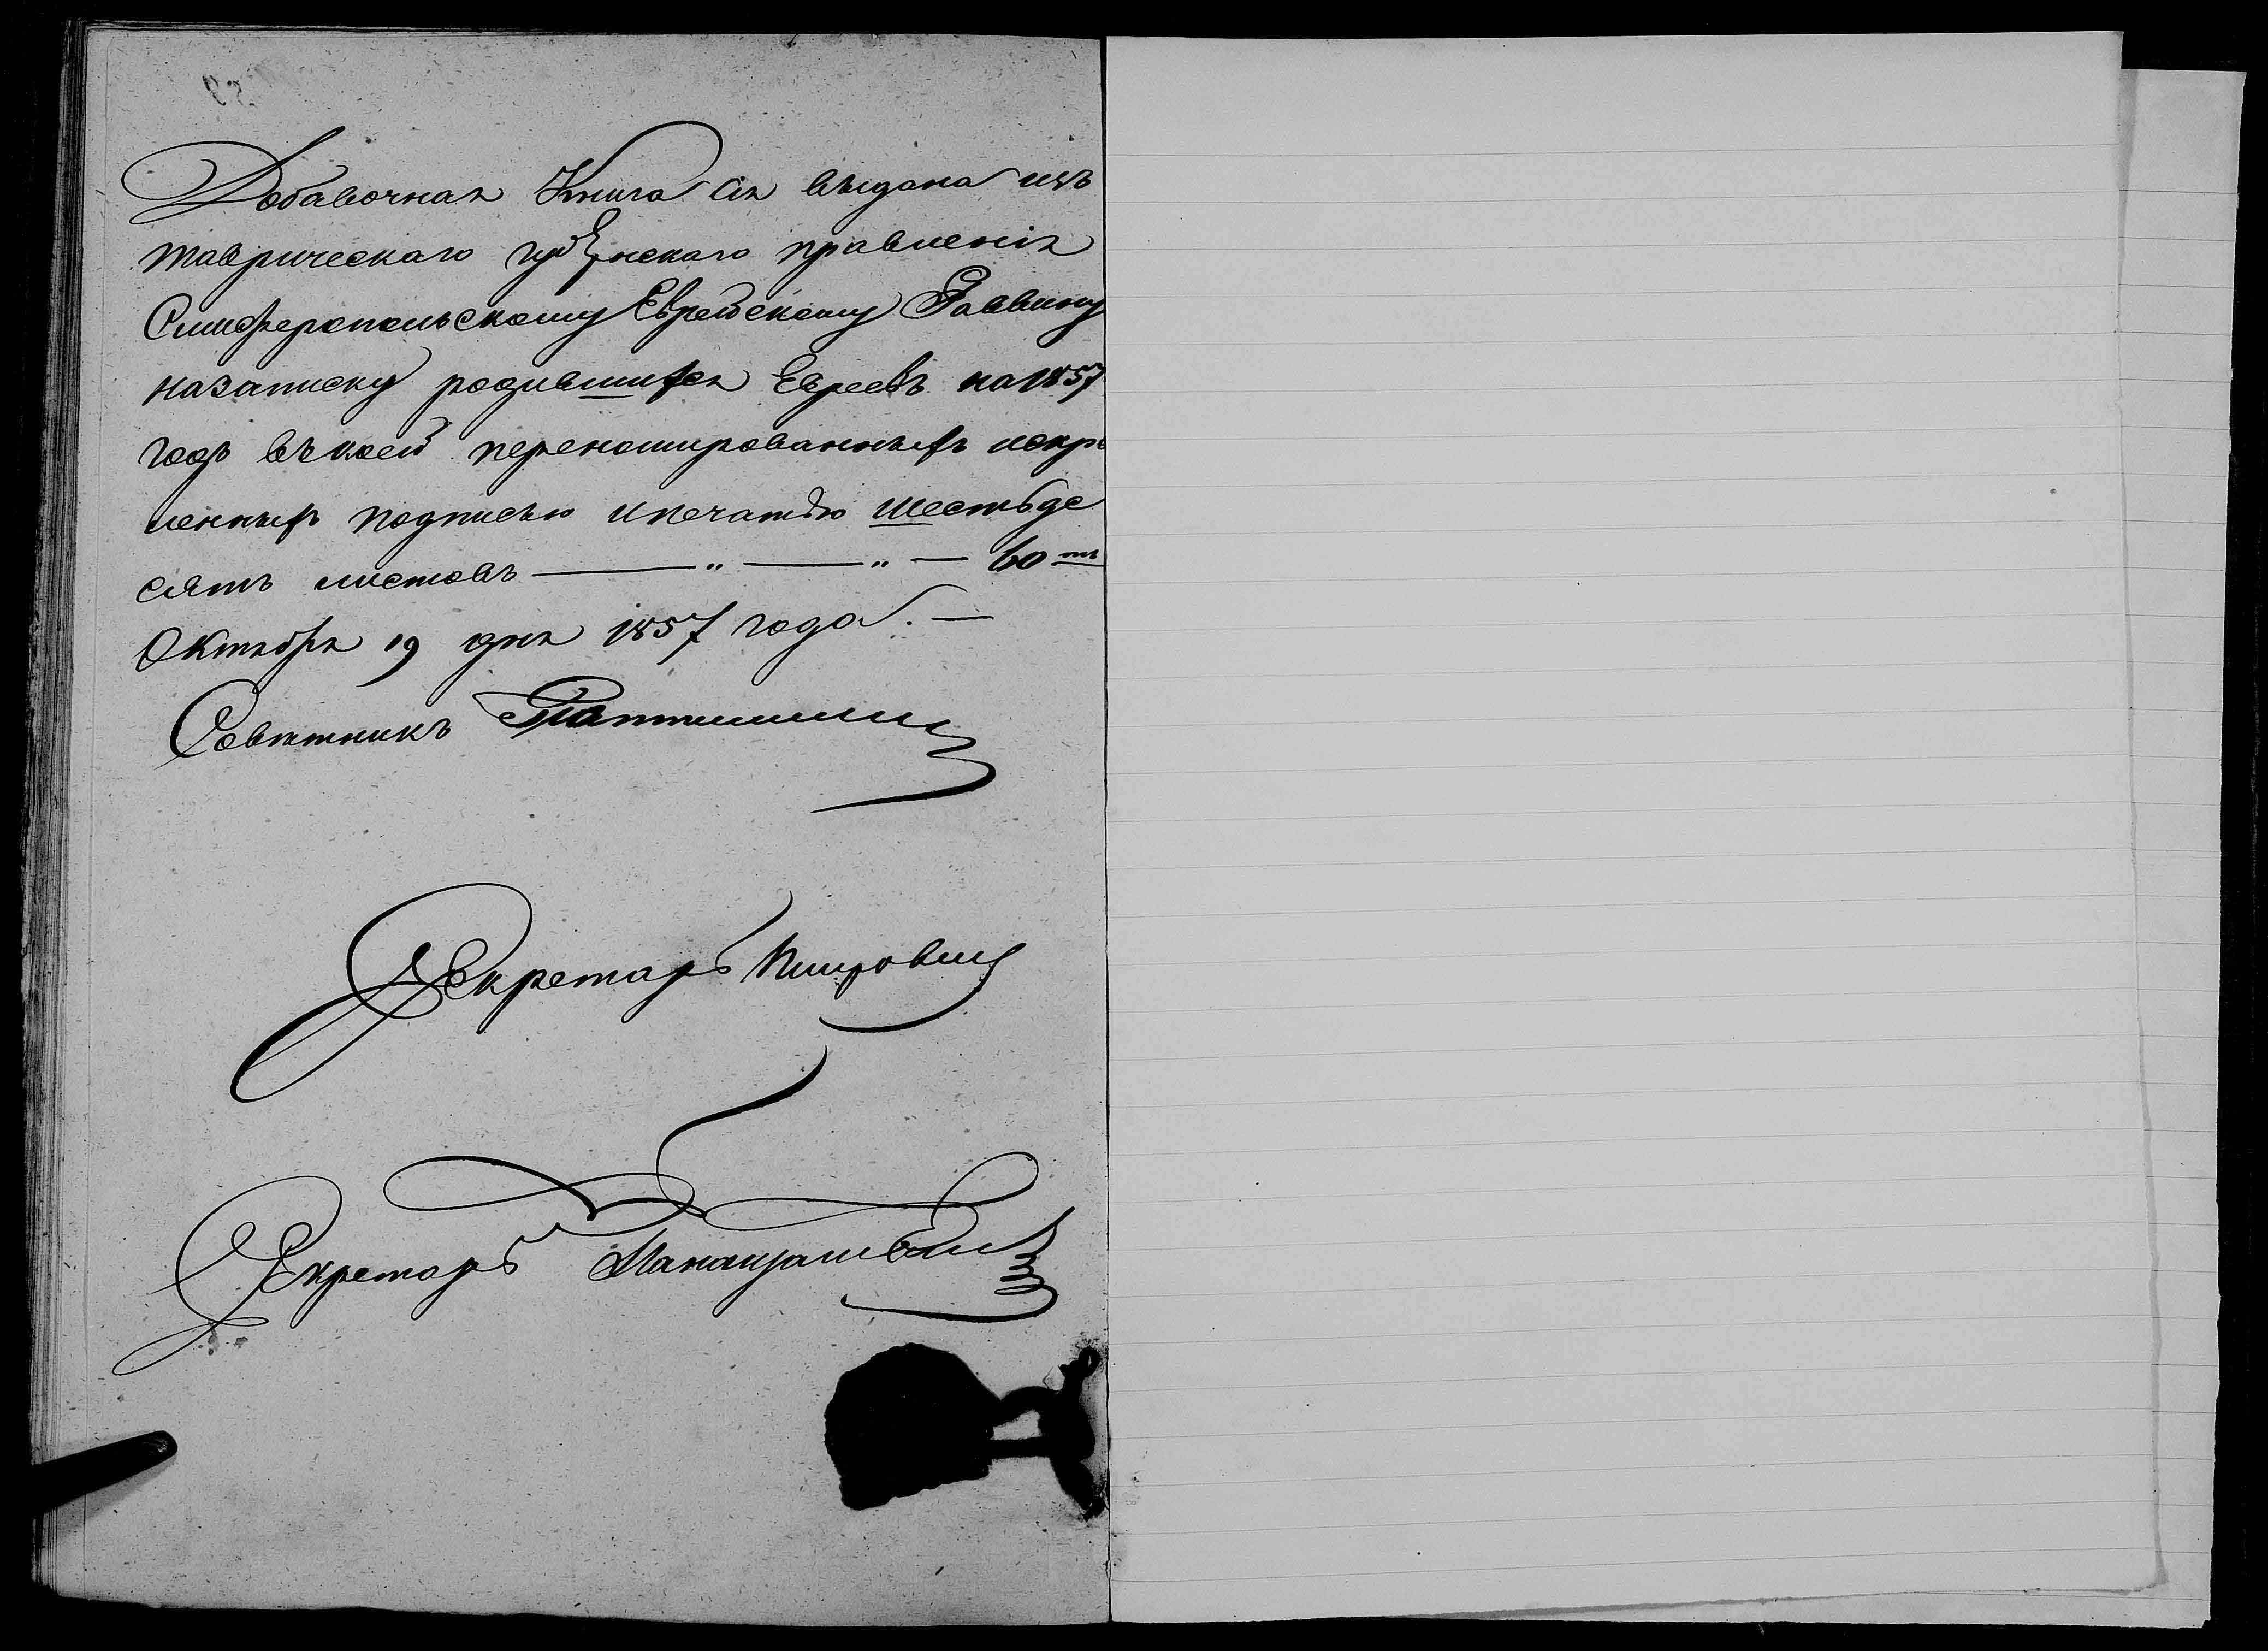 Добавочная Книга сія выдана изъ
таврическаго губернскаго правленія
Симферопольскому Еврейскому Раввину
назаписку родившихся Евреевъ на 1857
годъ въ коей переномированныхъ искрѣ
пленныхъ подписью и печатью шестьде
сять листовъ — „ — „ — 60 ть
Октября 19 дня 1857 года. —
Совѣтникъ
Секретарь
Секретарь